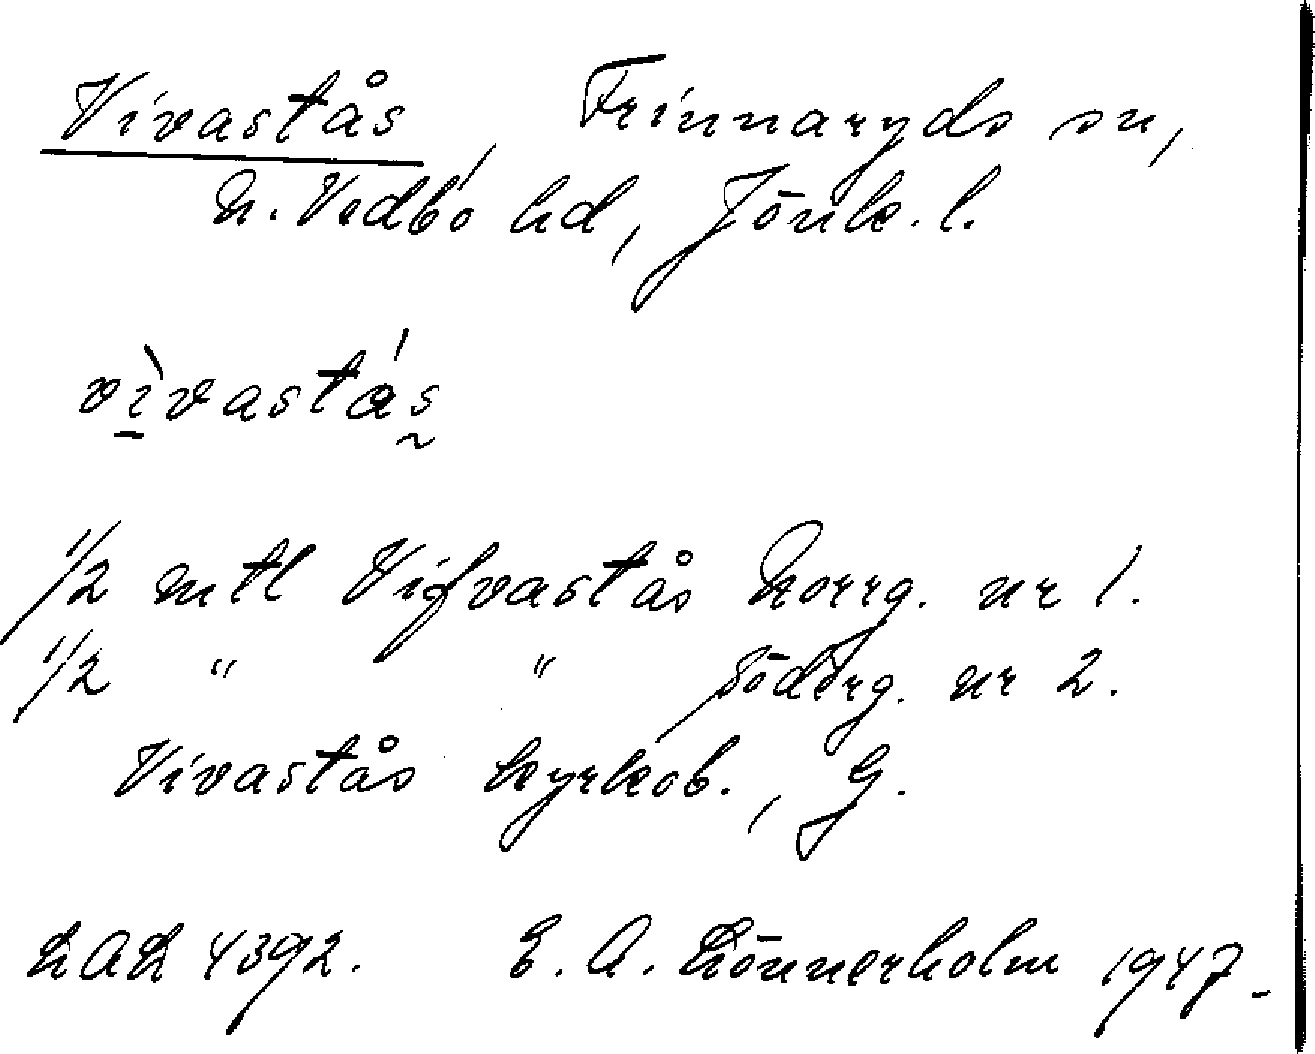 Vivastås, Frinnaryds sn,
N. Vedbo hd, Jönk. l.
vìvastá̰s
1/2 mtl Vifvastås Norrg. nr 1.
1/2 " " Söderg. nr 2.
Vivastås kyrkob., G.
LAL 4392. E. A. Lönnerholm 1947.